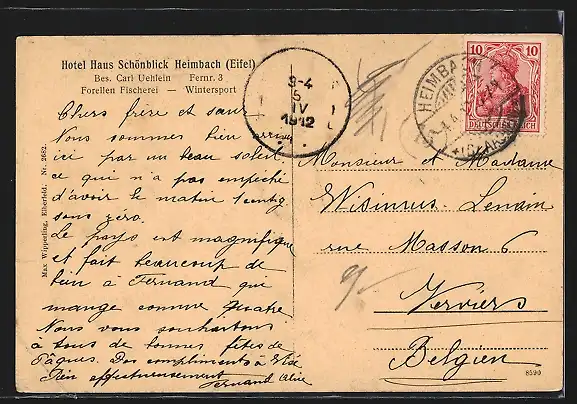 Hotel Haus Schönblick Heimbach (Eifel)
Bes. Carl Uehlein Fernr. 3
Forellen Fischerei — Wintersport
Chers frère et sœur
Nous sommes bien arrivés
ici par un beau soleil
ce qui n'a pas empêché
d'avoir le matin 1 centig
sous zéro.
Le pays est magnifique
et fait beaucoup de
bien à Fernand qui
mange comme quatre
Nous vous souhaitons
à tous de bonnes fêtes de
Pâques. Des compliments à
Bien affectueusement
Fernand
Max Wipperling, Elberfeld. Nr. 2682.
3-4
5
IV
1912
HEIMBACH
(EIFEL)
10 10
DEUTSCHES REICH
Monsieur et Madame
Lenain
rue Masson 6
Verviers
Belgien
8590